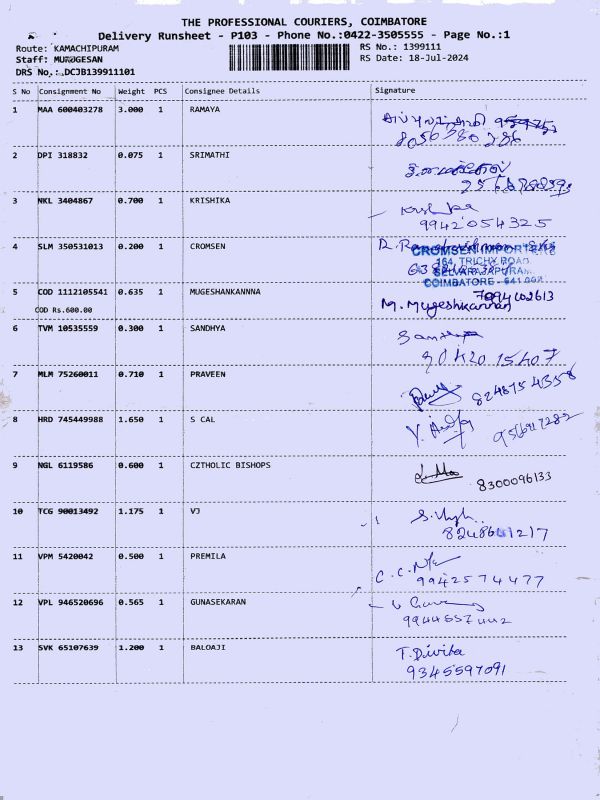 THE PROFESSIONAL COURIERS, COIMBATORE
Delivery Runsheet - P103 - Phone No.:0422-3505555 - Page No.:1
Route: KAMACHIPURAM
RS No.: 1399111
Staff: MURUGESAN
RS Date: 18-Jul-2024
DRS No.:DCJB139911101
S No Consignment No Weight PCS Consignee Details Signature
1 MAA 600403278 3.000 1 RAMAYA
8056780286
2 DPI 318832 0.075 1 SRIMATHI
3 NKL 3404867 0.700 1 KRISHIKA
9942054325
4 SLM 350531013 0.200 1 CROMSEN
CROMSEN IMPORTERS
164, TRICHY ROAD
COIMBATORE
5 COD 1112105541 0.635 1 MUGESHKANNNA
COD Rs.600.00
M. Mugeshkannan
6 TVM 10535559 0.300 1 SANDHYA
7 MLM 75260011 0.710 1 PRAVEEN
8 HRD 745449988 1.650 1 S CAL
9 NGL 6119586 0.600 1 CZTHOLIC BISHOPS
8300096133
10 TCG 90013492 1.175 1 VJ
11 VPM 5420042 0.500 1 PREMILA
9942574477
12 VPL 946520696 0.565 1 GUNASEKARAN
9944557442
13 SVK 65107639 1.200 1 BALOAJI
T. Divita
9345597091